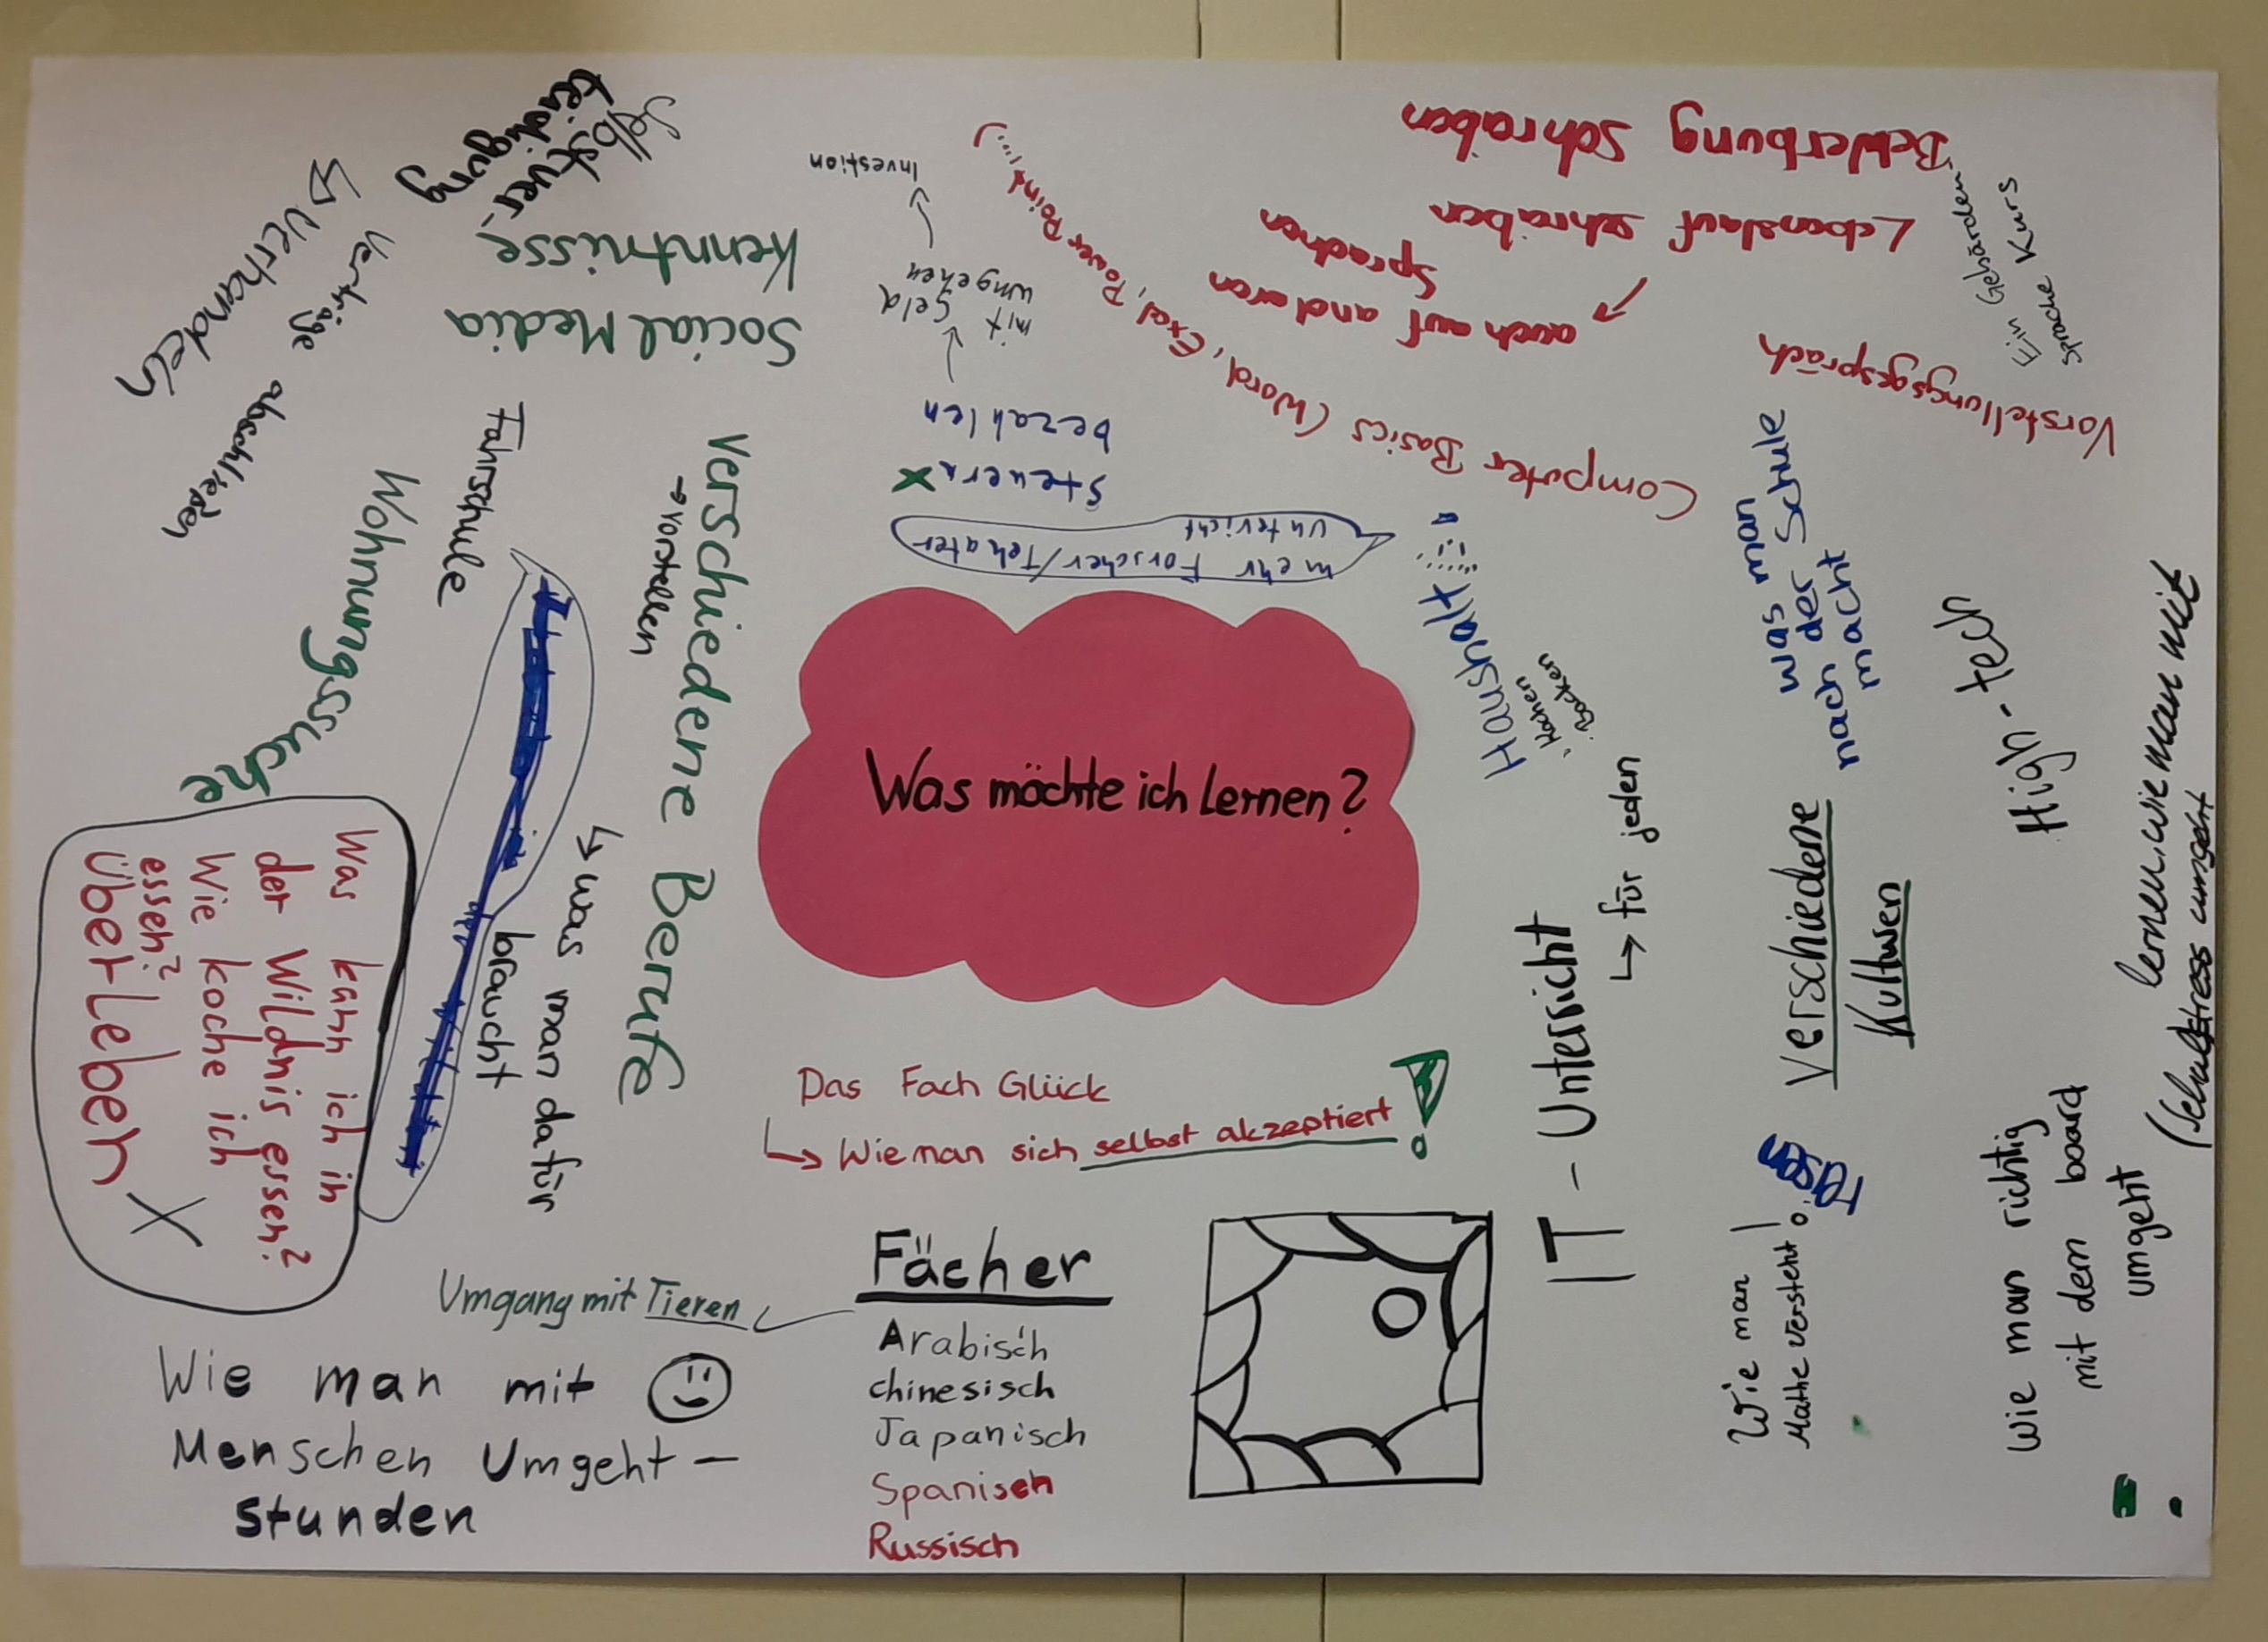 Was möchte ich Lernen?
Das Fach Glück
↳ Wie man sich selbst akzeptiert !
Fächer
Arabisch
chinesisch
Japanisch
Spanisch
Russisch
Umgang mit Tieren
Wie man mit
Menschen Umgeht -
Stunden
Was kann ich in
der Wildnis essen?
Wie koche ich
essen?
überLeben
Verschiedene Berufe
→ vorstellen
↳ was man dafür
braucht
Fahrschule
Wohnungssuche
Verträge abschließen
↳ Verhandeln
Selbstver-
teidigung
Social Media
Kenntnisse
mehr Forscher/Tehater
Untericht
Steuern
bezahlen
mit Geld
umgehen
Investion
Computer Basics (Word, Exel, Power Point, ...)
Bewerbung schreiben
Lebenslauf schreiben
auch auf anderen
Sprachen
Vorstellungsgespräch
Ein Gebärden-
sprache Kurs
Haushalt
· Kochen
· Backen
IT - Unterricht
↳ für jeden
was man
nach der Schule
macht
Verschiedene
Kulturen
Wie man
Mathe versteht!
High-tech
Wie man richtig
mit dem board
umgeht
lernen, wie man mit
Schulstress umgeht